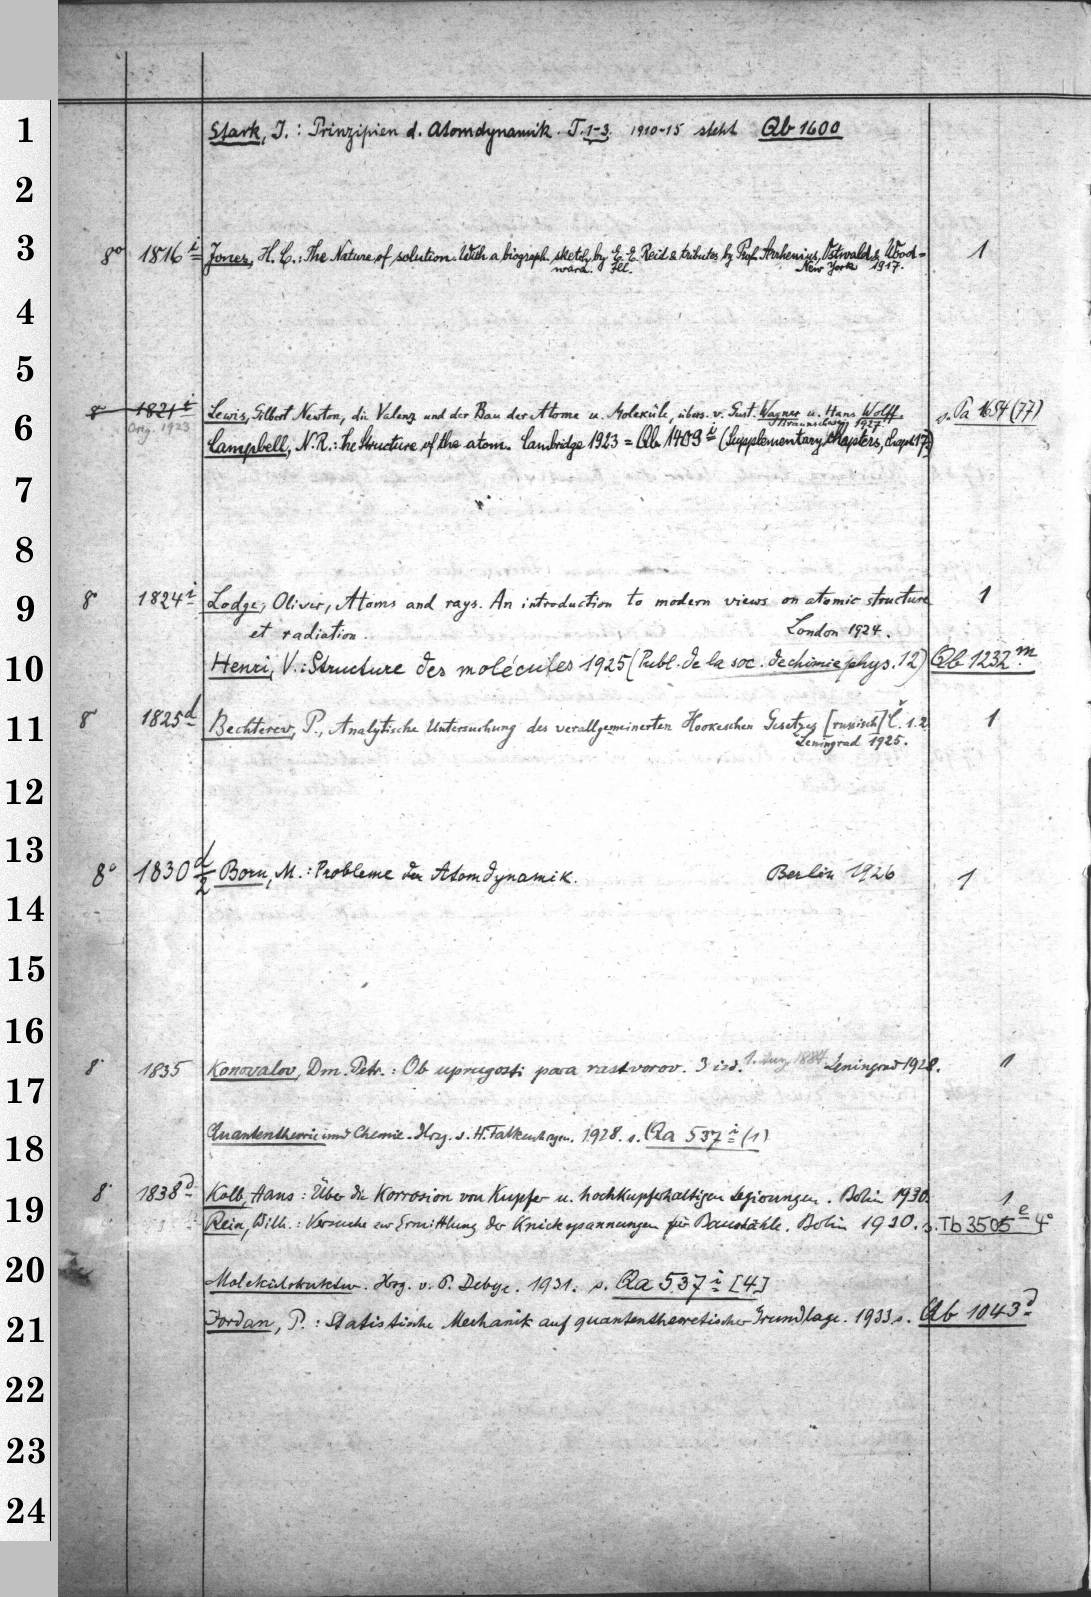 1 Stark, J.: Prinzipien d. Atomdynamik. T. 1-3. 1910-15 steht Qb 1600
2
3 8° 1816 i Jones, H. C.: The Nature of solution. With a biograph. sketch by E. E. Reid & tributes by Prof. Arrhenius, Ostwald & Wood- 1
ward. Ill. New York 1917.
4
5
8° 1821 i Lewis, Gilbert Newton, die Valenz und der Bau der Atome u. Moleküle, übers. v. Gust. Wagner u. Hans Wolff. s. Pa 1654 (77)
6 Orig. 1923 Braunschweig 1927
Campbell, N. R.: the Structure of the atom. Cambridge 1923 = Qb 1409 i (Supplementary Chapters, Chapt 17)
7
8
9 8° 1824 i Lodge, Oliver, Atoms and rays. An introduction to modern views on atomic structure 1
et radiation. London 1924.
10 Henri, V.: Structure des molécules 1925 (Publ. de la soc. de chimie phys. 12) Qb 1232 m
11 8° 1825 d Bechterev, P., Analytische Untersuchung des verallgemeinerten Hookeschen Gesetzes [russisch] Č. 1.2 1
Leningrad 1925.
12
13 8° 1830 d/2 Born, M.: Probleme der Atomdynamik. Berlin 1926 1
14
15
16
8° 1835 Konovalov, Dm. Petr.: Ob uprugosti para rastvorov. 3 izd. 1. Ausg. 1884. Leningrad 1928. 1
17
18 Quantentheorie und Chemie. Hrsg. v. H. Falkenhagen. 1928. s. Qa 537 i (1)
19 8° 1838 d Kolb, Hans: Über die Korrosion von Kupfer u. hochkupferhaltigen Legierungen. Berlin 1930. 1
Rein, Wilh.: Versuche zur Ermittlung der Knickspannungen für Baustähle. Berlin 1930. s. Tb 3505 e 4°
20 Molekülstruktur. Hrsg. v. P. Debye. 1931. s. Qa 537 i [4]
21 Jordan, P.: Statistische Mechanik auf quantentheoretischer Grundlage. 1933 s. Qb 1043 d
22
23
24